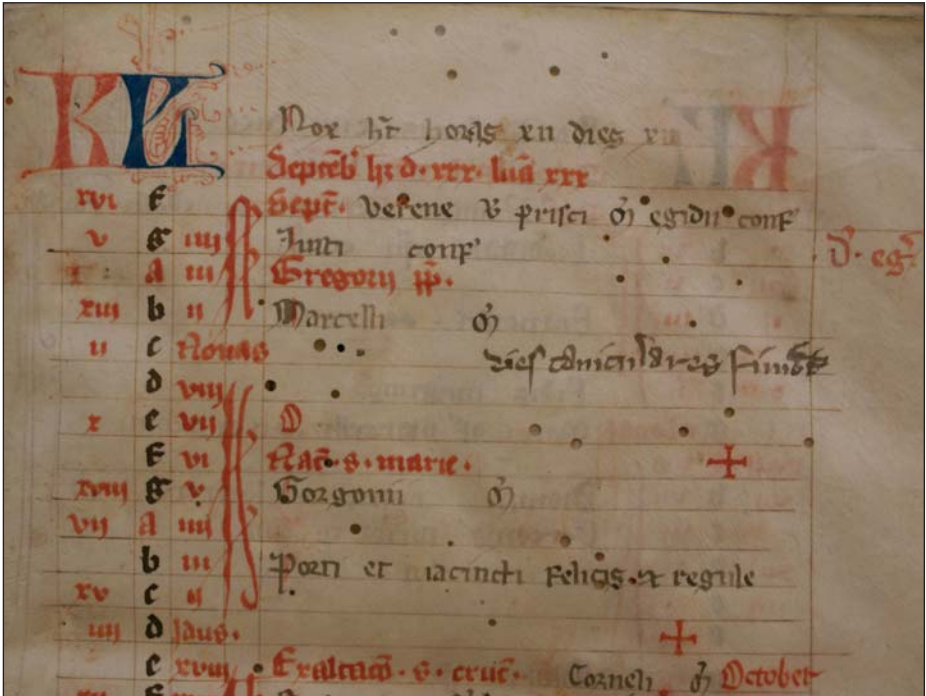 KL Nox ht horas xii dies xii
Septeb' hʒ d. xxx. luā xxx
xvi f Sept. Verene v prisci m̄ egidii conf
v g iiii Iusti conf D'. eg'
a iii Gregorii pp.
xiii b ii Marcelli m̄
ii c Nonas dies caniculares finit
d viii
x e vii D
f vi Nat̄. s. marie. +
xviii g v Gorgonii m̄
vii a iiii
b iii Proti et iacincti felicis. et regule
xv c ii
iiii d Idus. +
e xviii Exaltatō. s. cruc̄. Corneli m̄ October